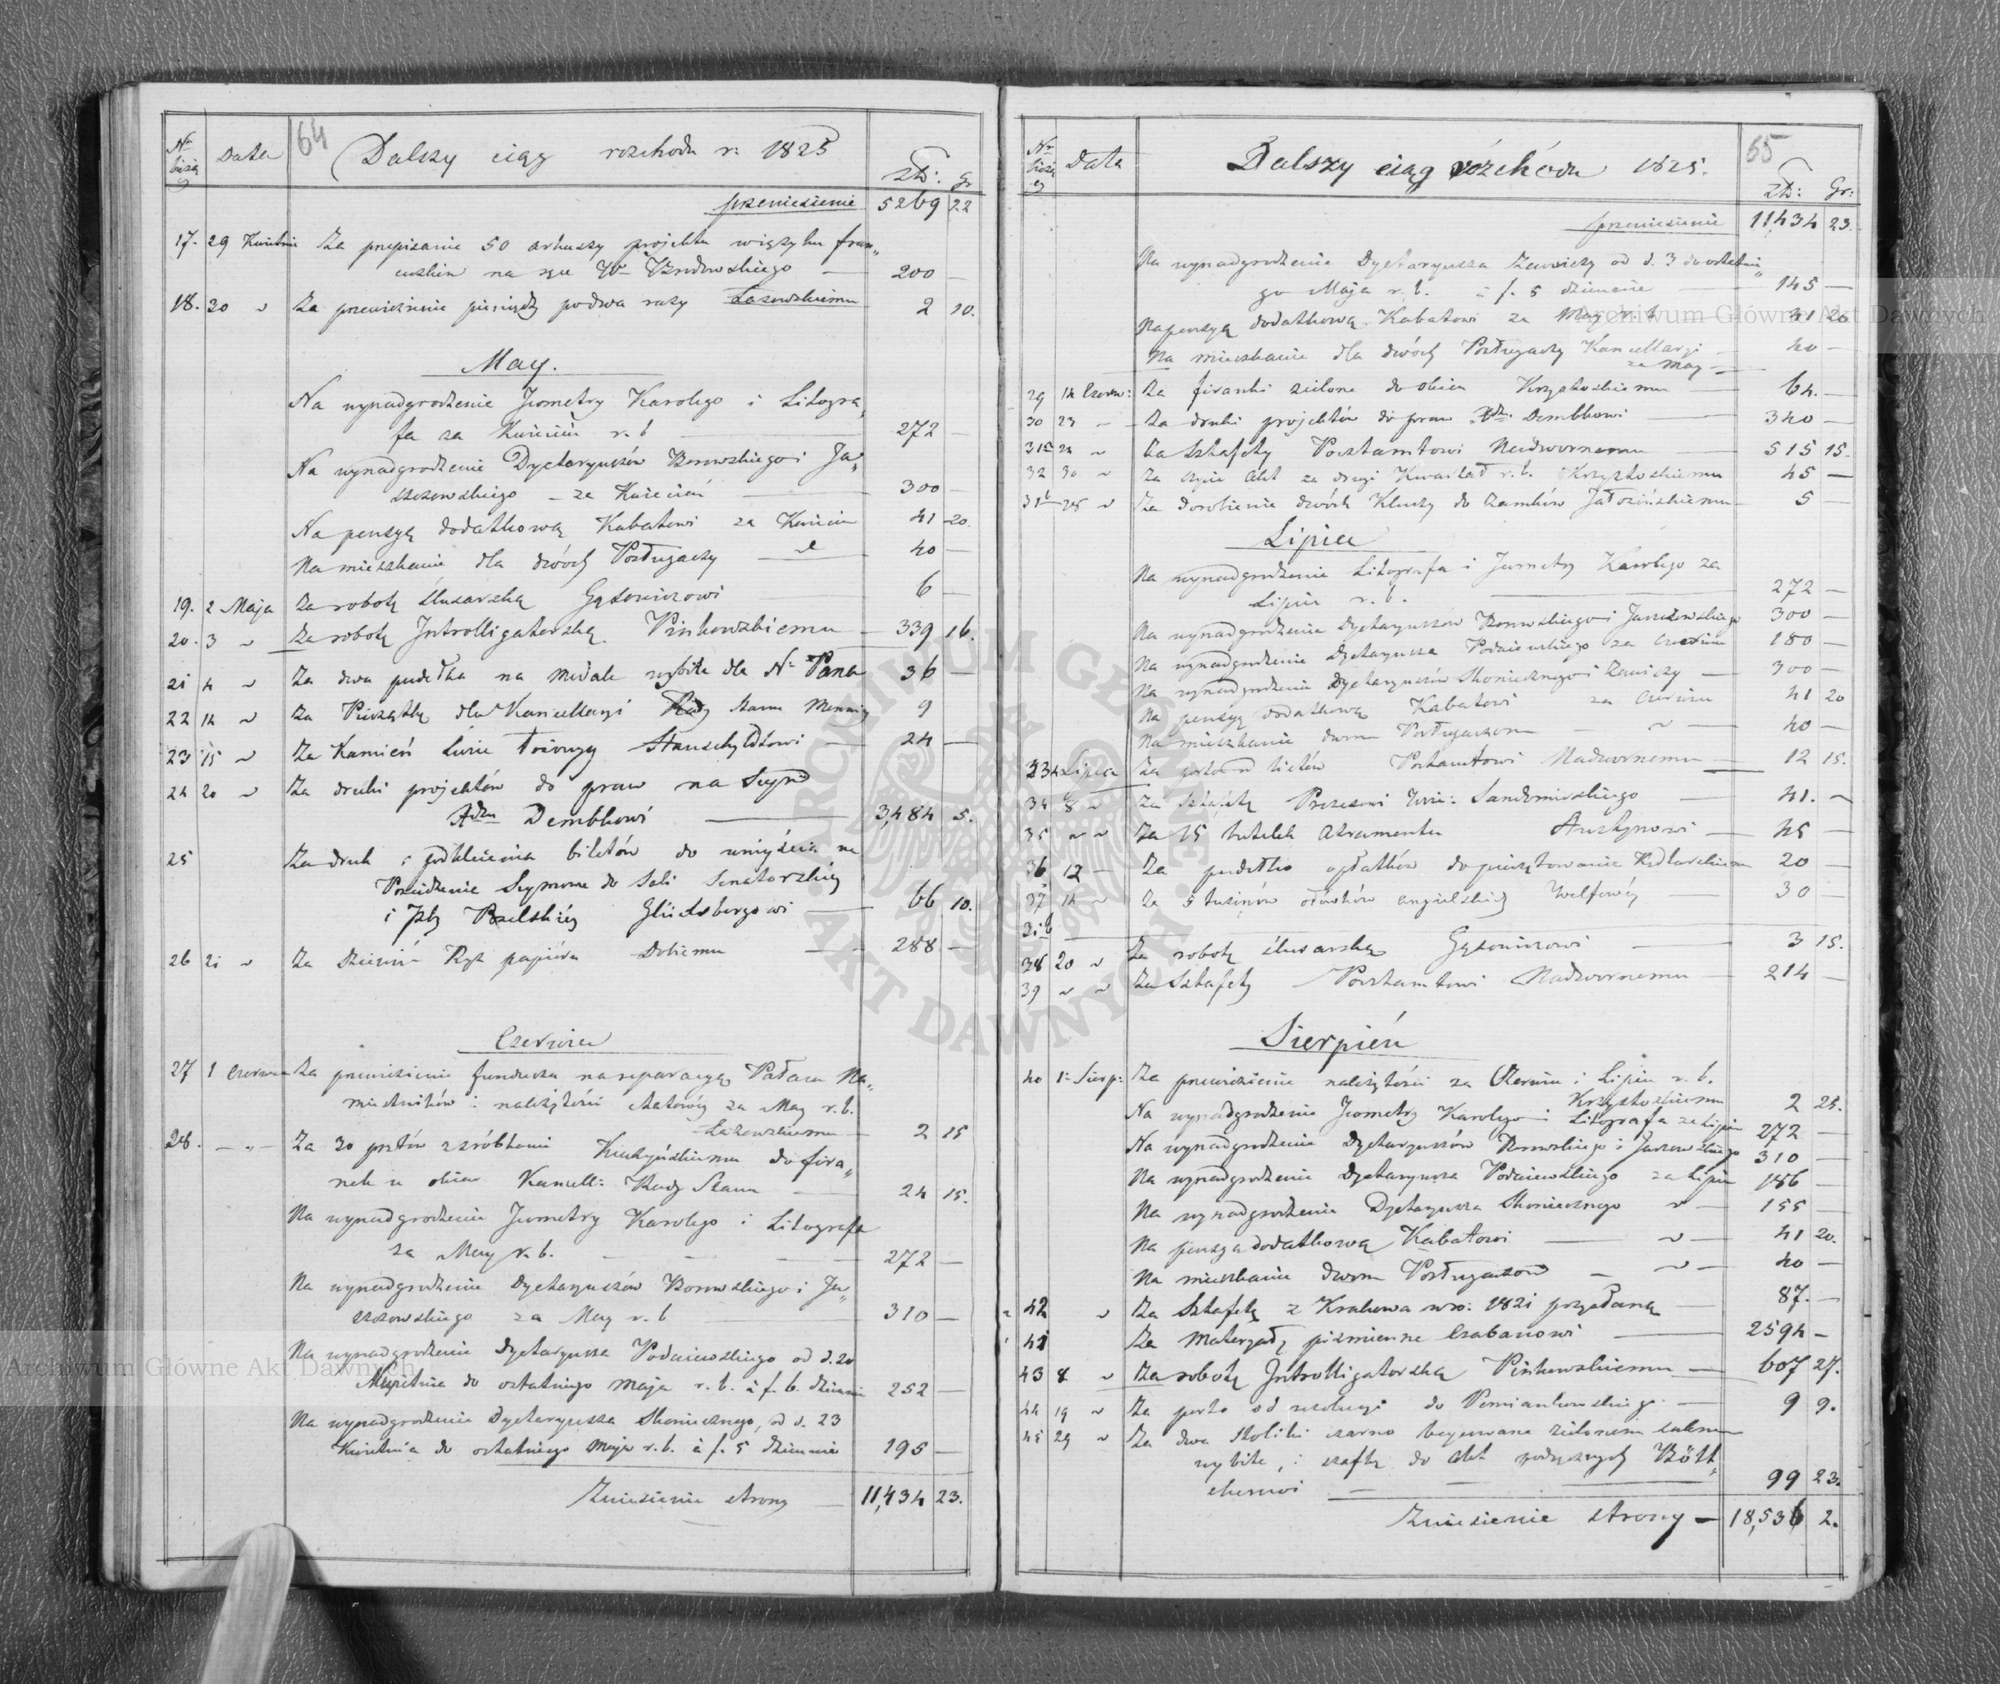 64
Nr
bieżą
Data
Dalszy ciąg rozchodu r: 1825
Złt: gr
przeniesienie 5269 22
17. 29 Kwietnia Za przepisanie 50 arkuszy projektu w języku fran„
cuskim na ręce Wo 200 —
18. 30 „ Za przewiezienie pieniędzy po dwa razy Łazowskiemu 2 10.
May.
Na wynadgrodzenie Jeometry Karolego i Litogra„
fa za Kwiecień r. b 272 —
Na wynadgrodzenie Dyetaryuszów Borowskiego i Ja„
szczowskiego — za Kwiecień 300 —
Na pensyą dodatkową Kabatowi za Kwiecień 41 20.
Na mieszkanie dla dwóch Posługaczy — 40 —
19. 2 Maja Za robotę ślusarską Gąsiorowi 6 —
20. 3 „ Za robotę Introlligatorską Pińkowskiemu — 339 16.
21 4 „ Za dwa pudełka na medale wybite dla N. Pana 36 —
22 14 „ Za Pieczątkę dla Kancellaryi Rady Stanu 9
23 15 „ Za Kamień — 24 —
24 20 „ Za druki projektów do praw na Seym
Dembkowi 3,484 5.
25 Za druk i podklejenia biletów do umieszczenia na
Posiedzenie Seymowe do Sali Senatorskiej
i Izby Poselskiej Glücksbergowi 66 10.
26 21 „ Za Dziesięć Ryz papieru 288 —
Czerwiec
27 1 Czerwca Za przewiezienie funduszu na reparacyą Pałacu Na„
miestników i należytości etatowej za May r. b.
Łazowskiemu 2 15
28. — „ — Za 30 prętów do fira„
nek u okien Kancell: Rady Stanu 24 15.
Na wynadgrodzenie Jeometry Karolego i Litografa
za May r. b. 272 —
Na wynadgrodzenie Dyetaryuszów Borowskiego i Ja„
szczowskiego za May r. b 310 —
Na wynadgrodzenie Dyetaryusza Podniewskiego od d. 20
Kwietnia do ostatniego Maja r. b. á f. 6. dziennie 252 —
Na wynadgrodzenie Dyetaryusza Skoniecznego, od d. 23
Kwietnia do ostatniego Maja r. b. á f. 5 dziennie 195 —
Zniesienie strony — 11,434 23.
65
Nr
bieżą
Data
Dalszy ciąg rózchodu 1825.
Złt: Gr:
przeniesienie 11,434 23.
Na wynadgrodzenie Dyetaryusza Zawiszy od d. 3 do ostatnie„
go Maja r. b. á f. 5 dziennie 145 —
Na pensyą dodatkową Kabatowi za May r. b 41 20
Na mieszkanie dla dwóch Posługaczy Kancellaryi
za May — 40 —
29 14 Czerw: Za firanki zielone do okien Krzyskoskiemu 64. —
30 23 — Za druki projektów do praw Dembkowi 340 —
31 24 „ Za Sztafety Pocztamtowi Nadwornemu 515 15.
32 30 „ Za szycie Akt za drugi Kwartał r. b. 45 —
31b 25 „ Za dorobienie dwóch Kluczy do zamków 5 —
Lipiec
Na wynadgrodzenie Litografa i Jeometry Karolego za
Lipiec r. b. 272 —
Na wynadgrodzenie Dyetaryuszów Borowskiego i Jaszczowskiego 300 —
Na wynadgrodzenie Dyetaryusza Podniewskiego za Czerwiec 180 —
Na wynadgrodzenie Dyetaryuszów Skoniecznego i Zawiszy — 300 —
Na pensyą dodatkową Kabatowi za Czerwiec 41 20
Na mieszkanie dwom Posługaczom — „ — 40 —
33 4 Lipca Za porto listów Pocztamtowi Nadwornemu 12 15.
34 8 „ Za Sztafetę Prezesowi Sandomirskiego — 41. —
35 „ „ Za 15 butelek Atramentu — 45 —
36 12 — Za pudełko opłatków do pieczętowania 20 —
37 14 „ Za 5 tuzinów ołówków angielskich — 30 —
38 20 „ Za robotę ślusarską Gąsiorowi 3 15.
39 „ „ Za Sztafety Pocztamtowi Nadwornemu — 214 —
Sierpień
40 1. Sierp: Za przewiezienie należytości za Czerwiec i Lipiec r. b.
2 25.
Na wynadgrodzenie Jeometry Karolego i Litografa za Lipiec 272 —
Na wynadgrodzenie Dyetaryuszów Borowskiego i Jaszczowskiego 310 —
Na wynadgrodzenie Dyetaryusza Podniewskiego za Lipiec 186 —
Na wynadgrodzenie Dyetaryusza Skoniecznego „ — 155 —
Na pensyą dodatkową Kabatowi — „ — 41 20.
Na mieszkanie dwom Posługaczom — „ — 40 —
42 „ Za Sztafetę z Krakowa 1821 przysłaną 87. —
41 Za Materyały piśmienne Czabanowi 2594 —
43 8 „ Za robotę Introlligatorską Pińkowskiemu — 607 27.
44 19 „ Za porto od 9 9.
45 29 „ Za dwa Stoliki czarno bejcowane zielonem suknem
wybite, i szafkę do Akt Bött„
cherowi — 99 23.
Zniesienie strony — 18,536 2.
Archiwum Główne Akt Dawnych
Archiwum Główne Akt Dawnych
ARCHIWUM GŁÓWNE AKT DAWNYCH